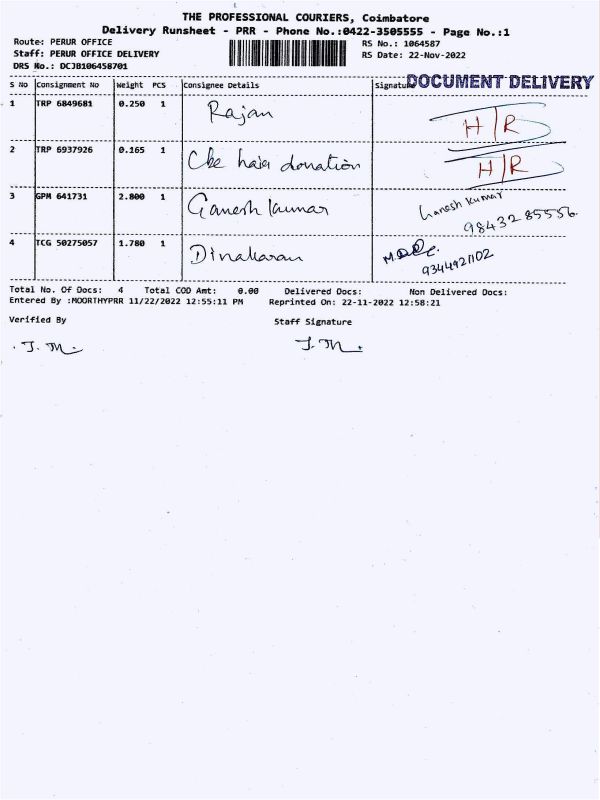 THE PROFESSIONAL COURIERS, Coimbatore
Delivery Runsheet - PRR - Phone No.:0422-3505555 - Page No.:1
Route: PERUR OFFICE
Staff: PERUR OFFICE DELIVERY
DRS No.: DCJB106458701
RS No.: 1064587
RS Date: 22-Nov-2022
DOCUMENT DELIVERY
S No Consignment No Weight PCS Consignee Details Signature
1 TRP 6849681 0.250 1 Rajan H/R
2 TRP 6937926 0.165 1 Cbe hair donation H/R
3 GPM 641731 2.800 1 Ganesh kumar Ganesh Kumar
98432 85556
4 TCG 50275057 1.780 1 Dinakaran
9344921102
Total No. Of Docs: 4 Total COD Amt: 0.00 Delivered Docs: Non Delivered Docs:
Entered By :MOORTHYPRR 11/22/2022 12:55:11 PM Reprinted On: 22-11-2022 12:58:21
Verified By Staff Signature
J. M. J. M.